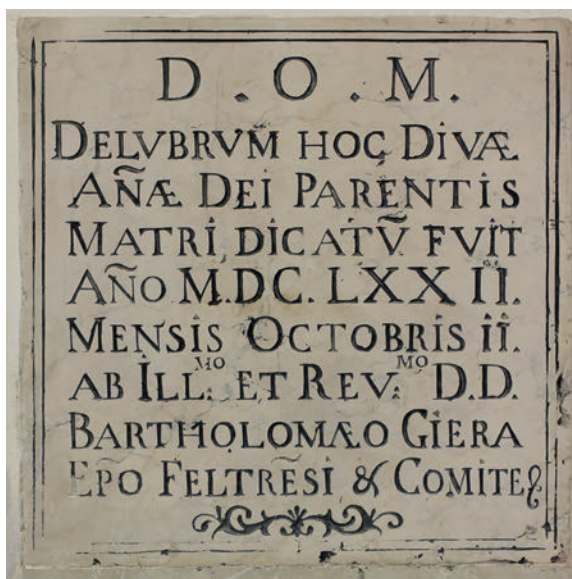 D . O . M.
DELVBRVM HOC DIVÆ
AÑÆ DEI PARENTIS
MATRI DICATṼ FVIT
AÑO M.DC. LXX II.
MENSIS OCTOBRIS II.
AB ILL:MO ET REV:MO D.D.
BARTHOLOMÆO GIERA
EPÕ FELTRẼSI & COMITE